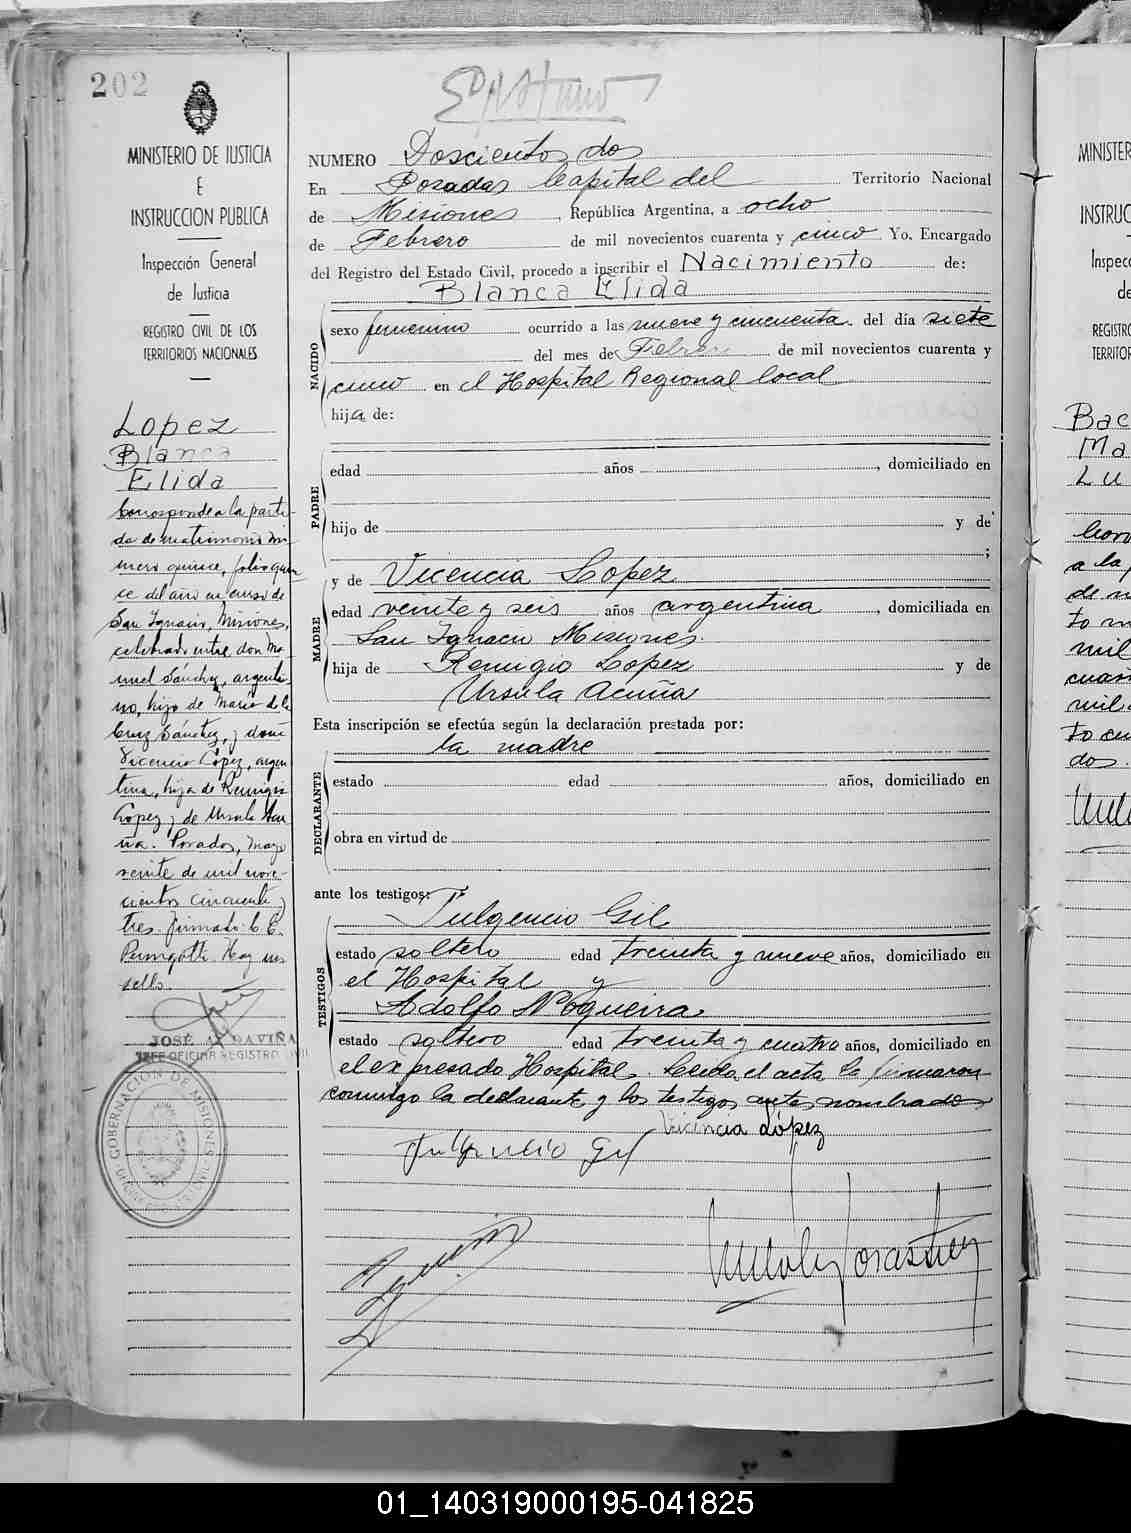 202
MINISTERIO DE JUSTICIA
E
INSTRUCCION PUBLICA
Inspección General
de Justicia
REGISTRO CIVIL DE LOS
TERRITORIOS NACIONALES
Lopez
Blanca
Elida
Corresponde a la parti-
da de matrimonio nú-
mero quince, folio quin
ce del año en curso de
San Ignacio, Misiones,
celebrado entre don Ma
nuel Sánchez, argenti
no, hijo de María de la
Cruz Sánchez, y doña
Vicencia López, argen
tina, hija de Remigio
López y de Ursula Acu
ña. Posadas, mayo
veinte de mil nove-
cientos cincuenta y
tres. firmado: C. E.
Hay un
sello.
JOSÉ A. DAVIÑA
JEFE OFICINA REGISTRO CIVIL
GOBERNACION DE MISIONES
NUMERO Doscientos dos
En Posadas Capital del Territorio Nacional
de Misiones, República Argentina, a ocho
de Febrero de mil novecientos cuarenta y cinco Yo, Encargado
del Registro del Estado Civil, procedo a inscribir el Nacimiento de:
Blanca Elida
NACIDO
sexo femenino ocurrido a las nueve y cincuenta del día siete
del mes de Febrero de mil novecientos cuarenta y
cinco en el Hospital Regional local
hija de:
PADRE
edad años, domiciliado en
hijo de y de
;
MADRE
y de Vicencia Lopez
edad veinte y seis años argentina, domiciliada en
San Ignacio Misiones.
hija de Remigio Lopez y de
Ursula Acuña
Esta inscripción se efectúa según la declaración prestada por:
la madre
DECLARANTE
estado edad años, domiciliado en
obra en virtud de
ante los testigos:
Fulgencio Gil
TESTIGOS
estado soltero edad treinta y nueve años, domiciliado en
el Hospital y
Adolfo Nogueira
estado soltero edad treinta y cuatro años, domiciliado en
el expresado Hospital. Leida el acta la firmaron
conmigo la declarante y los testigos antes nombrados
Vicencia López
Fulgencio Gil
MINISTER
INSTRUC
Inspec
de
REGISTRO
TERRITOR
Bac
Ma
Lu
a la
de m
to
mil
cuar
mil
to cu
dos.
01_140319000195-041825